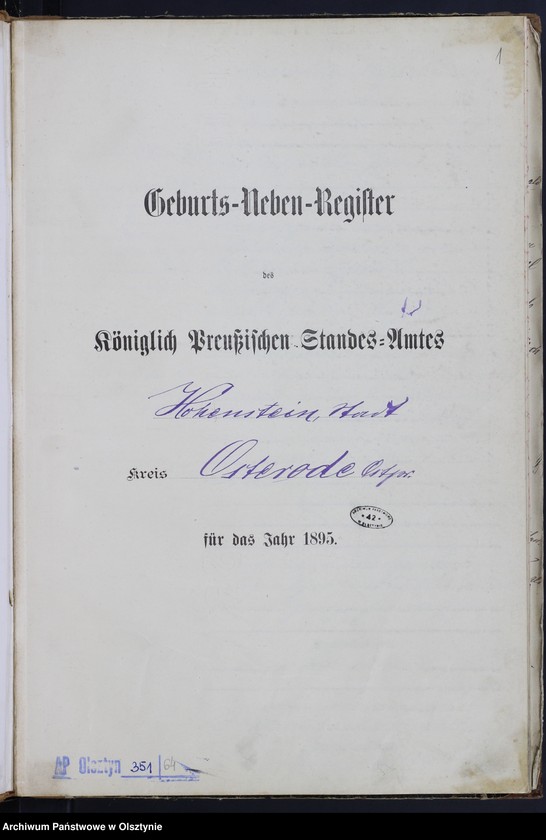 1
Geburts-Neben-Register
des
Königlich Preußischen Standes-Amtes
Hohenstein, Stadt
Kreis Osterode Ostpr.
ARCHIWUM PAŃSTWOWE
* 42 *
W OLSZTYNIE
für das Jahr 1895.
AP Olsztyn 351 64
Archiwum Państwowe w Olsztynie